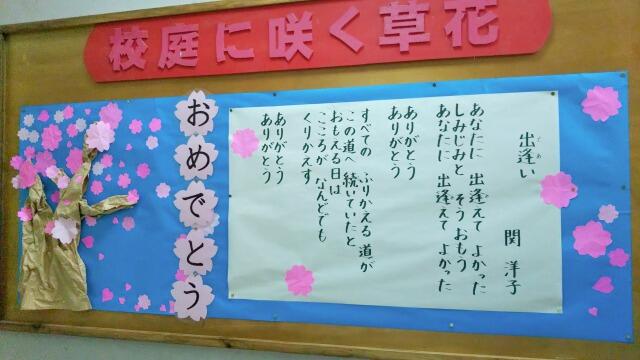 校庭に咲く草花
おめでとう
出逢い
であ
関 洋子
あなたに 出逢えて よかった
しみじみと そう おもう
あなたに 出逢えて よかった
ありがとう
ありがとう
すべての ふりかえる 道が
この道へ 続いていたと
おもえる日は
こころが なんどでも
くりかえす
ありがとう
ありがとう